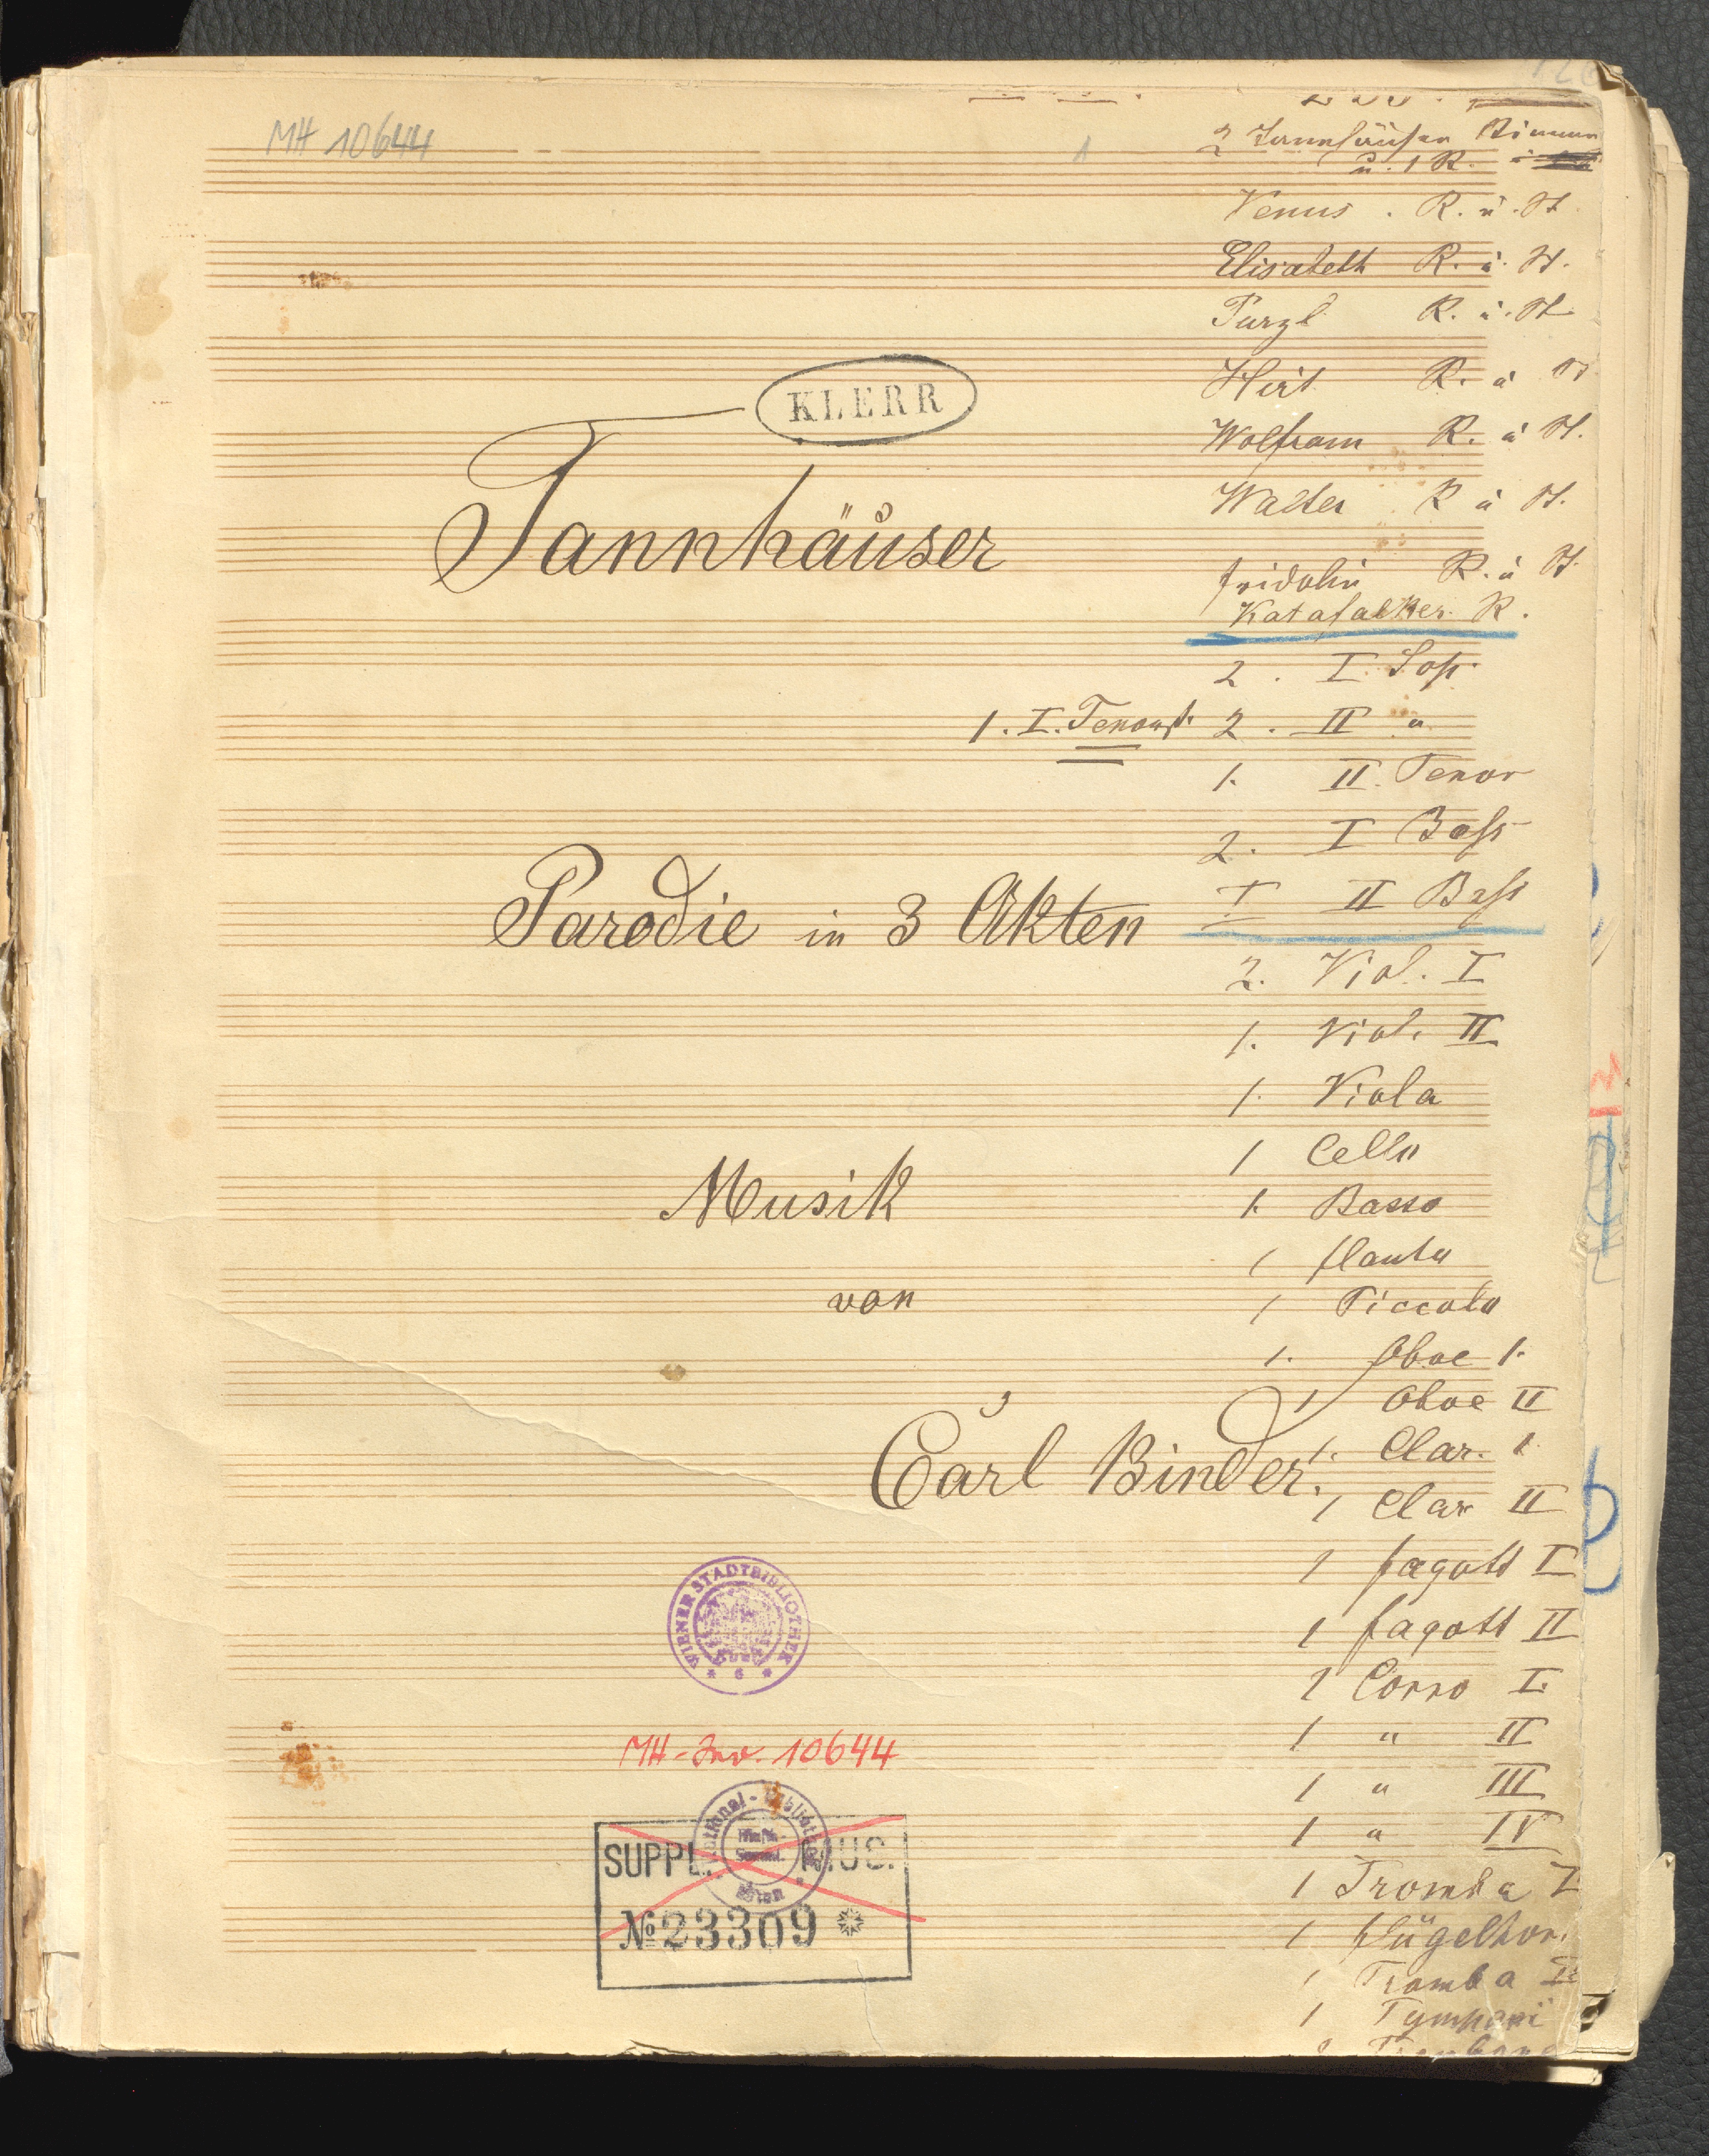 MH 10644
1
2 Tannhäuser Stimmen
u. 1 R.
Venus . R. u. St.
Elisabeth R. u. St.
Purzl R. u. St
Hirt R. u St
Wolfram R. u St.
Walter R u St.
Fridolin R. u St.
Katafalker R.
KLERR
Tannhäuser
2 . I. Sop.
1. I. Tenor 2 . II "
1. II. Tenor
2. I Bass
1 II Bass
Parodie in 3 Akten
2. Viol. I
1. Viol. II
1. Viola
1 Cello
1. Basso
1 Flauto
1 Piccolo
1. Oboe 1.
1 Oboe II
1. Clar. 1.
1 Clar II
1 Fagott I
1 Fagott II
1 Corno I.
1 " II
1 " III
1 " IV
1 Tromba I
1 Flügelhor.
1 Tromba II
1 Tympani
Musik
von
Carl Binder.
WIENER STADTBIBLIOTHEK
* 6 *
MH-Inv. 10644
National-Bibliothek
Wien
SUPPL. MUS.
№ 23309 *